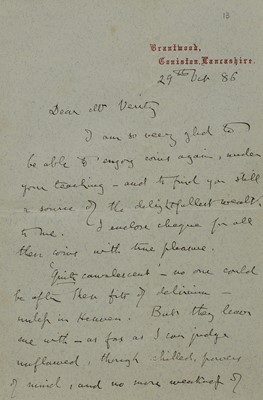 Brantwood,
Coniston, Lancashire.
29th Oct 86
Dear Mr Verity
I am so very glad to
be able to enjoy coins again, under
your teaching – and to find you still
a source of the delightfullest wealth
to me. I enclose cheque for all
these coins with true pleasure.
"Quite convalescent" – no one could
be after these fits of delirium –
unless in Heaven. But they leave
me with – as far as I can judge
unflawed, though chilled, powers
of mind, and no more weakness of